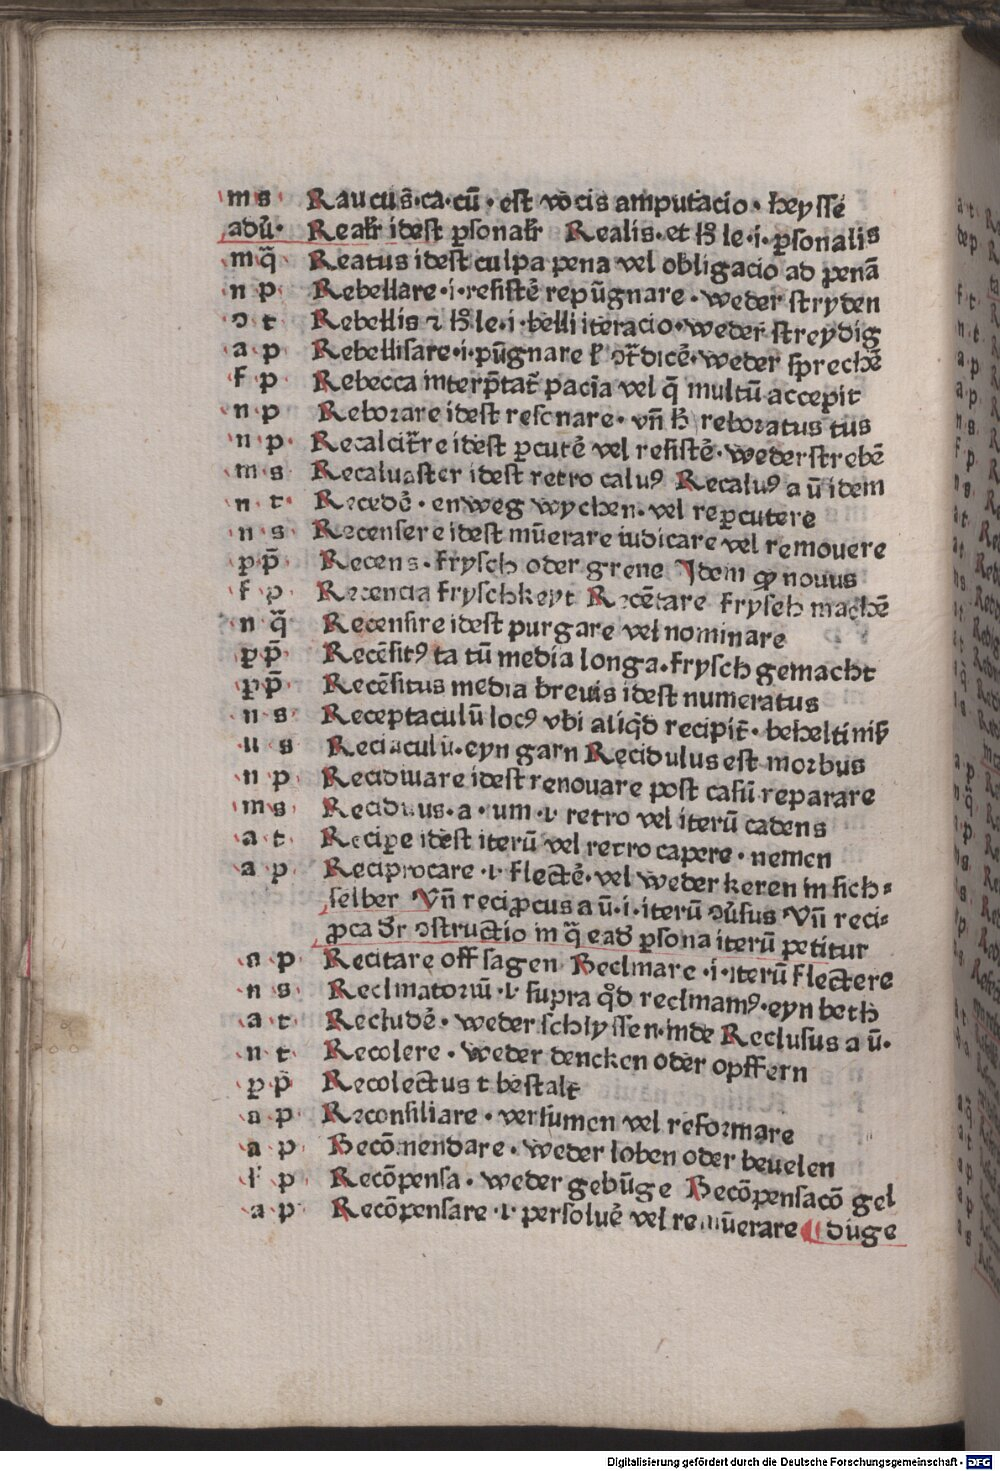 m s Raucus̄·ca·cū· est vocis amputacio· heysse
adū· Realr̄ idest ꝑsonalr̄ Realis·et hᷤ le·i·ꝑsonalis
m q̄ Reatus idest culpa pena vel obligacio ad penā
n p Rebellare·i·resistē repūgnare·weder stryden
ɔ t Rebellis ⁊ hᷤ le·i·belli iteracio·weder streydig
a p Rebellisare·i·pūgnare ɫ ɔt̄dicē·weder sprechē
f p Rebecca interp̄tat̄ pacīa vel q̄ multū accepit
n p Reborare idest resonare· vn̄ h̄ reboratus tus
n p Recalcit̄re idest ꝑcutē vel resistē·wederstrebē
m s Recaluaster idest retro caluꝰ Recaluꝰ a ū idem
n t Recedē·enweg wychen·vel reꝑcutere
n s Recensere idest mūerare iudicare vel remouere
ꝑ p̄ Recens·frysch oder grene Idem qꝫ nouus
f p Recencia fryschkeyt Recētare frysch machē
n q̄ Recensire idest purgare vel nominare
ꝑ p̄ Recēsitꝰ ta tū media longa·frysch gemacht
ꝑ p̄ Recēsitus media breuis idest numeratus
n s Receptaculū locꝰ vbi aliq̄d recipit̄·beheltinß
n s Reciaculū·eyn garn Recidulus est morbus
n p Recidiuare idest renouare post casū reparare
m s Recidiuus·a·um·ɫ retro vel iterū cadens
a t Reciꝑe idest iterū vel retro capere·nemen
a p Reciprocare·ɫ·flectē·vel weder keren in sich⸗
selber Vn̄ reciꝓcus a ū·i·iterū ɔūsus Vn̄ reci⸗
ꝓca dr̄ ɔstructio in q̄ ead̄ ꝑsona iterū petitur
a p Recitare off sagen Reclinare·i·iterū flectere
n s Reclinatoriū·ɫ·supra qd̄ reclinamꝰ·eyn beth
a t Recludē·weder schlyssen·inde Reclusus a ū·
n t Recolere·weder dencken oder opffern
ꝑ p̄ Recolectus t bestalt
a p Reconsiliare·versumen vel reformare
a p Recōmendare·weder loben oder beuelen
f p Recōpensa·weder gebūge Recōpensacō gel
a p Recōpensare·ɫ·persoluē vel remūerare ⸿ duge
Digitalisierung gefördert durch die Deutsche Forschungsgemeinschaft - DFG